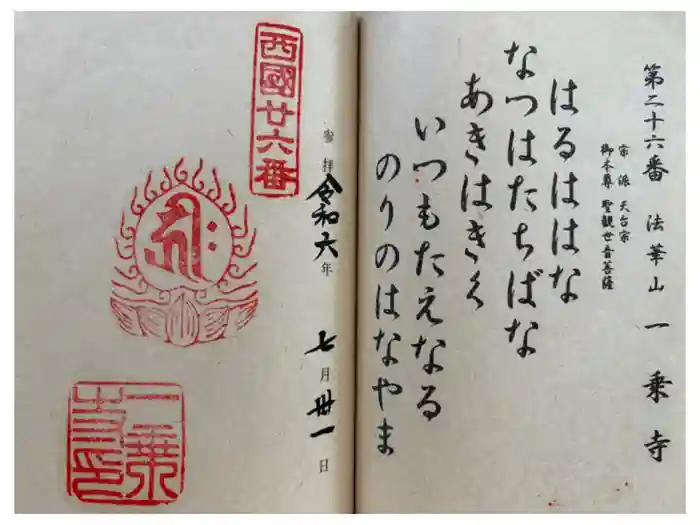 第二十六番 法華山 一乗寺
宗派 天台宗
御本尊 聖観世音菩薩
はるははな
なつはたちばな
あきはきく
いつもたえなる
のりのはなやま
参拝 令和六年 七月卅一日
西國廿六番
一乗寺印